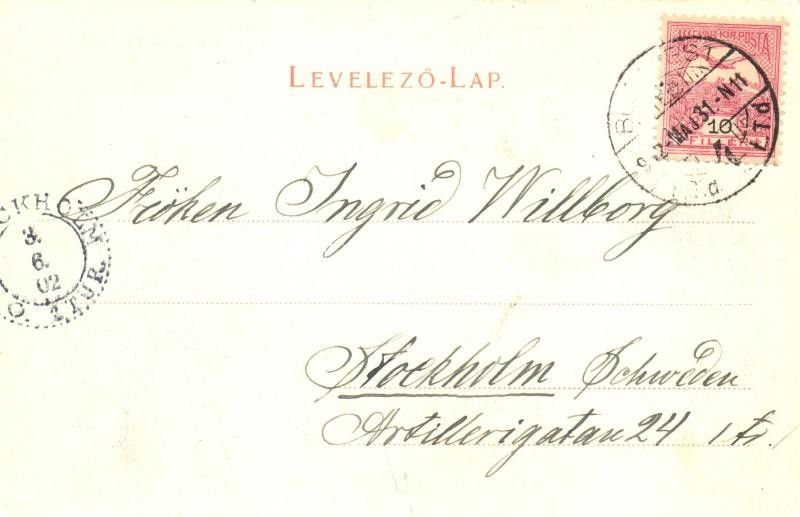 LEVELEZŐ-LAP.
MAGYAR KIR. POSTA
10
FILLÉR
MAJ. 31. N 11
Fröken Ingrid Willborg
CKHOLM
3.
6.
02
1 TUR.
Stockholm Schweden
Artillerigatan 24 1 tr.